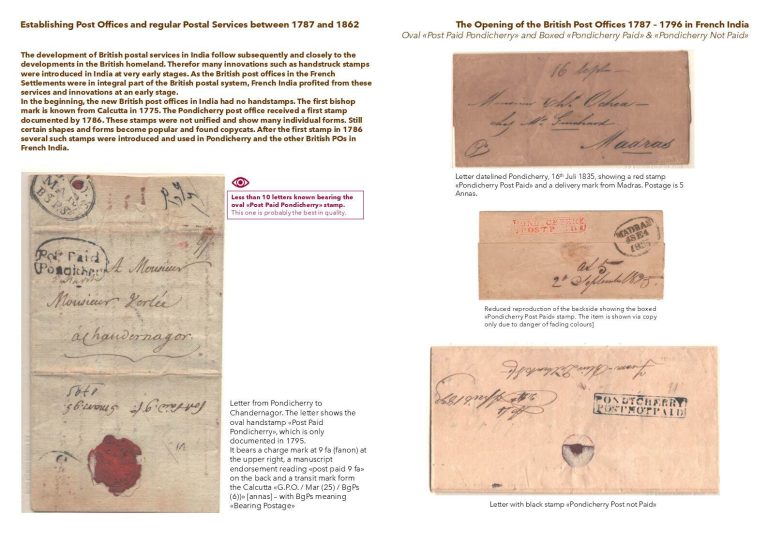 Establishing Post Offices and regular Postal Services between 1787 and 1862
The development of British postal services in India follow subsequently and closely to the
developments in the British homeland. Therefor many innovations such as handstruck stamps
were introduced in India at very early stages. As the British post offices in the French
Settlements were in integral part of the British postal system, French India profited from these
services and innovations at an early stage.
In the beginning, the new British post offices in India had no handstamps. The first bishop
mark is known from Calcutta in 1775. The Pondicherry post office received a first stamp
documented by 1786. These stamps were not unified and show many individual forms. Still
certain shapes and forms become popular and found copycats. After the first stamp in 1786
several such stamps were introduced and used in Pondicherry and the other British POs in
French India.
Less than 10 letters known bearing the
oval «Post Paid Pondicherry» stamp.
This one is probably the best in quality.
Post Paid
Pondicherry
A Monsieur
Monsieur
à Chandernagor
Letter from Pondicherry to
Chandernagor. The letter shows the
oval handstamp «Post Paid
Pondicherry», which is only
documented in 1795.
It bears a charge mark at 9 fa (fanon) at
the upper right, a manuscript
endorsement reading «post paid 9 fa»
on the back and a transit mark form
the Calcutta «G.P.O. / Mar (25) / BgPs
(6))» [annas] – with BgPs meaning
«Bearing Postage»
The Opening of the British Post Offices 1787 – 1796 in French India
Oval «Post Paid Pondicherry» and Boxed «Pondicherry Paid» & «Pondicherry Not Paid»
Madras
Letter datelined Pondicherry, 16th Juli 1835, showing a red stamp
«Pondicherry Post Paid» and a delivery mark from Madras. Postage is 5
Annas.
PONDICHERRY
POST PAID
MADRAS
Reduced reproduction of the backside showing the boxed
«Pondicherry Post Paid» stamp. The item is shown via copy
only due to danger of fading colours]
PONDICHERRY
POST NOT PAID
Letter with black stamp «Pondicherry Post not Paid»